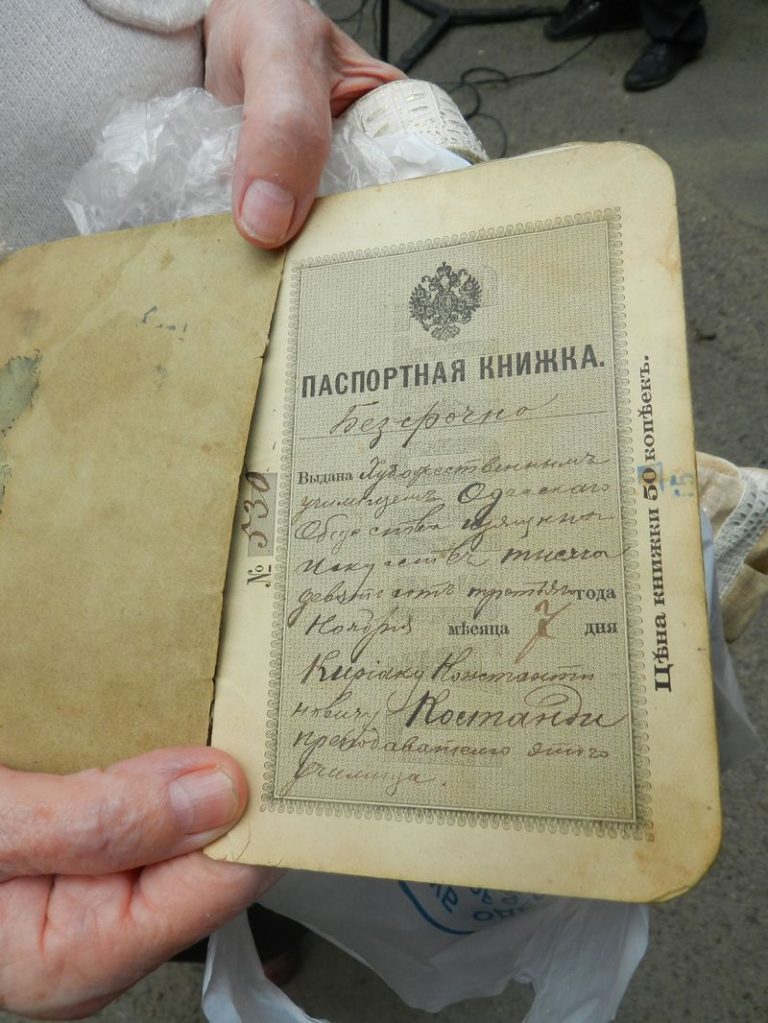 ПАСПОРТНАЯ КНИЖКА.
Безсрочно
Выдана Художественнымъ
училищемъ Одесскаго
Общества изящныхъ
искусствъ тысяча
девятьсотъ третьяго года
Ноября мѣсяца 7 дня
Киріаку Константи
новичу Костанди
преподавателю этого
училища.
№ 530
Цѣна книжки 50 копѣекъ.